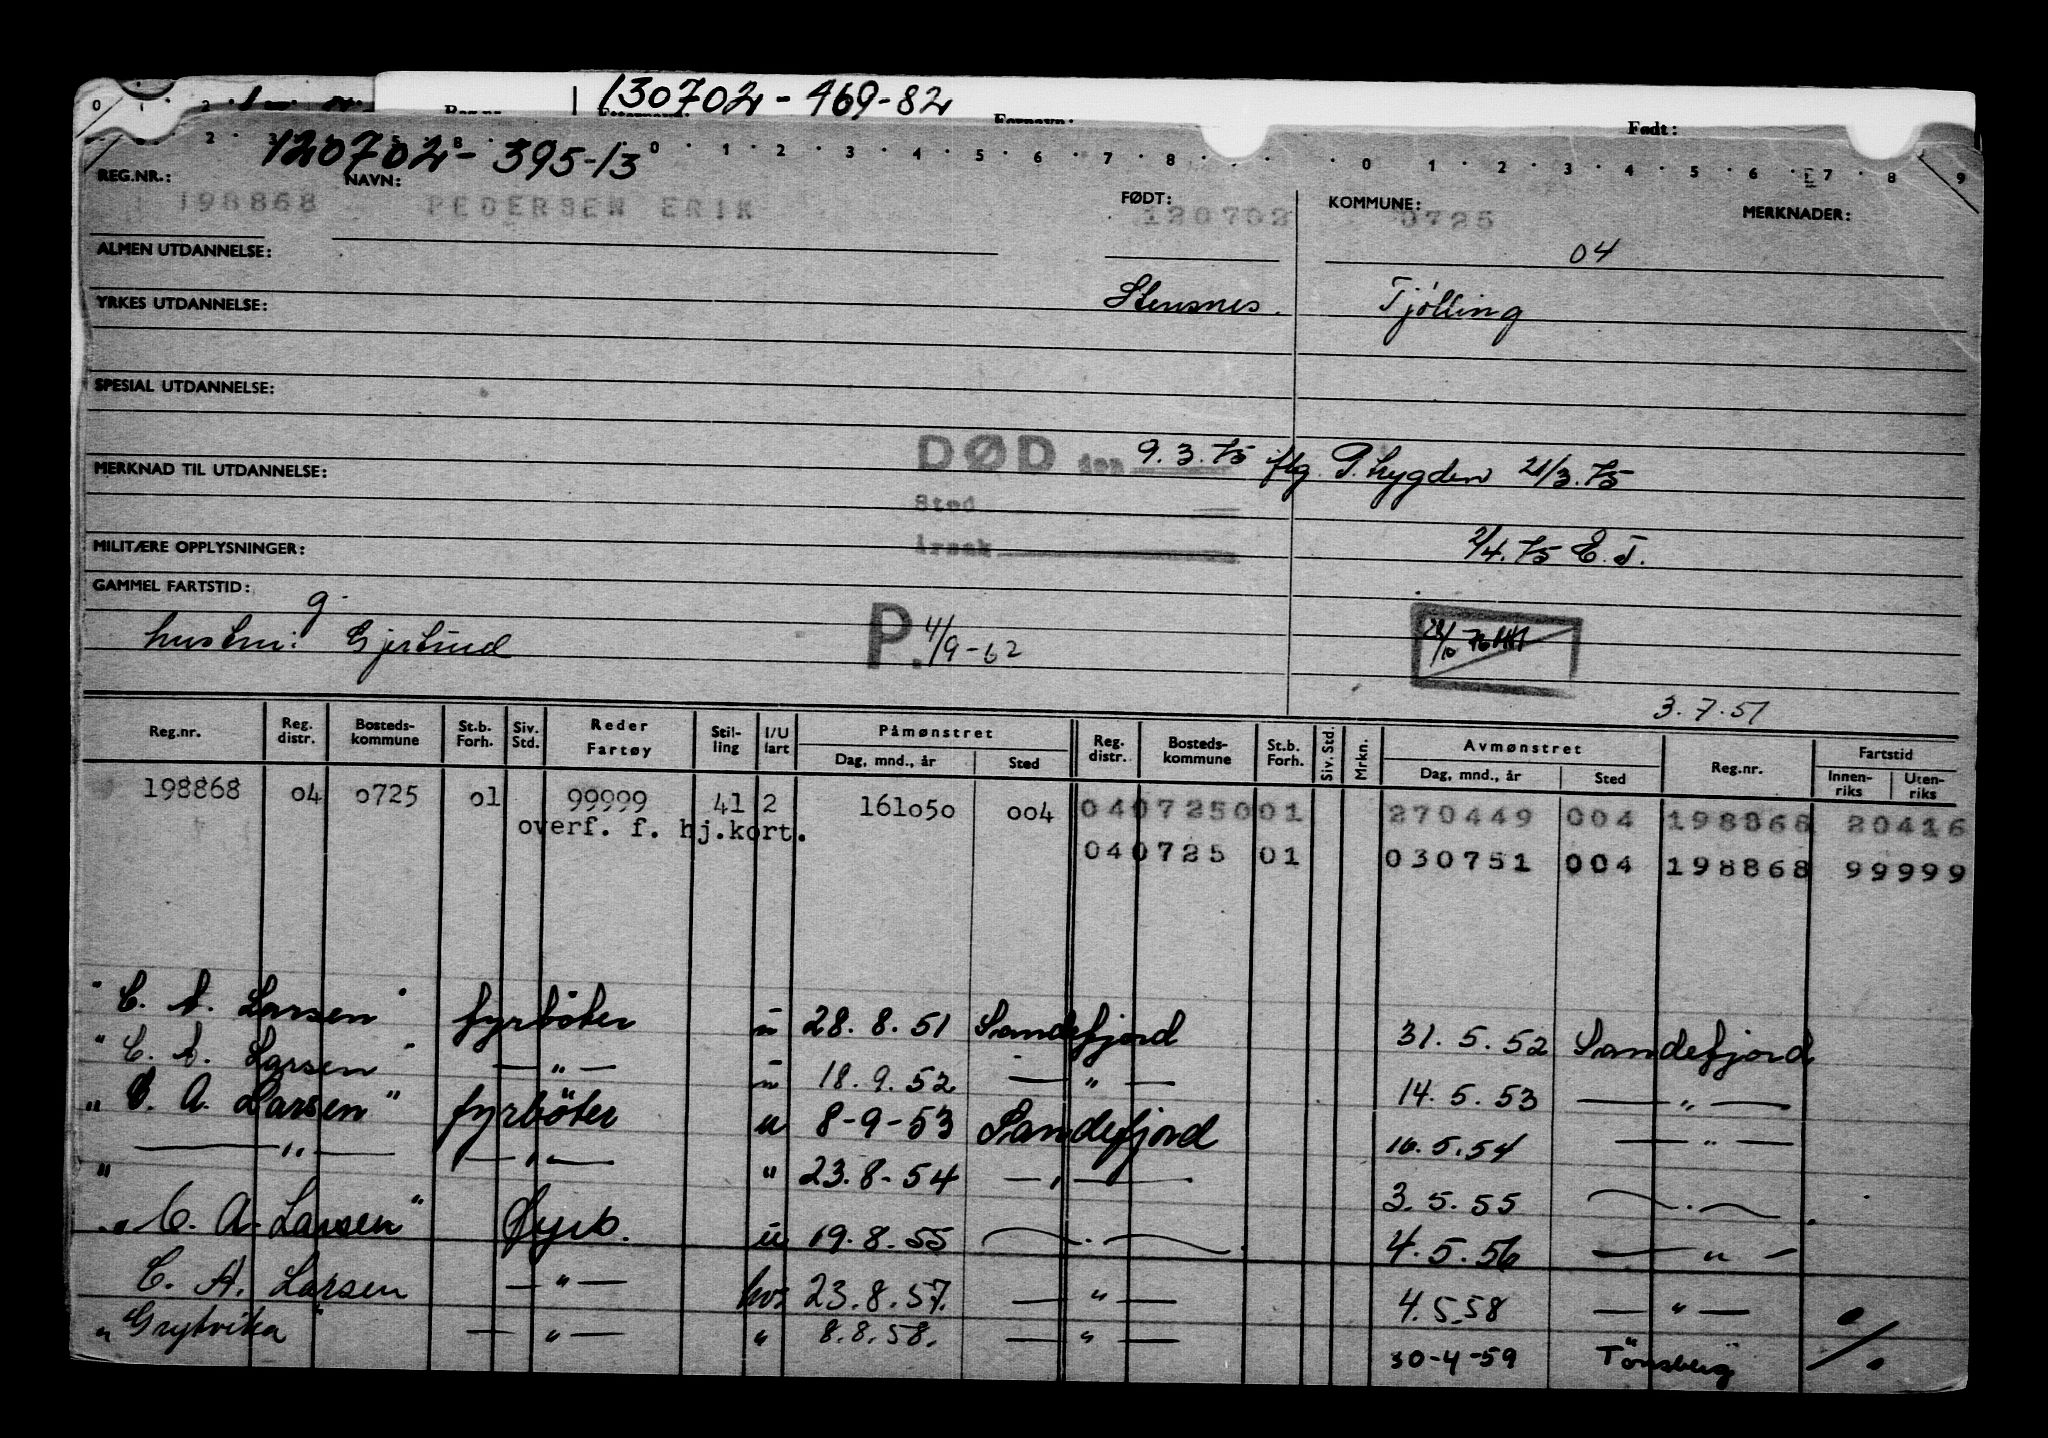 130702-469-82
Født:
120702-395-13
REG.NR.: NAVN: FØDT: KOMMUNE: MERKNADER:
198868 PEDERSEN ERIK 120702 0725
ALMEN UTDANNELSE: 04
YRKES UTDANNELSE: Stensnes. Tjölling
SPESIAL UTDANNELSE:
DØD den 9.3.75 flg. P. 21/3.75
MERKNAD TIL UTDANNELSE:
Sted
MILITÆRE OPPLYSNINGER: Årsak 2/4.75 E.T.
GAMMEL FARTSTID:
g.
hustru: Gjertrud P. 4/9-62
3.7.51
Reg.nr. Reg. distr. Bosteds-kommune St.b. Forh. Siv. Std. Reder Fartøy Stil-ling I/U fart Påmønstret Dag, mnd., år Sted Reg. distr. Bosteds-kommune St.b. Forh. Siv. Std. Mrkn. Avmønstret Dag, mnd., år Sted Reg.nr. Fartstid Innen-riks Uten-riks
198868 04 0725 01 99999 41 2 161050 004 040725001 270449 004 198868 20416
overf. f. hj.kort.
040725 01 030751 004 198868 99999
"C. A. Larsen" fyrböter u 28.8.51 Sandefjord 31.5.52 Sandefjord
"C. A. Larsen" — " — u 18.9.52 — " — 14.5.53 — " —
"C. A. Larsen" fyrböter u 8-9-53 Sandefjord 16.5.54 — " —
— " — — " — " 23.8-54 — " — 3.5.55 — " —
"C. A. Larsen" Øfyrb. u 19.8.55 — " — 4.5.56 — " —
C. A. Larsen — " — hvf 23.8.57. — " — 4.5.58 — " —
"Grytvika" — " — " 8.8.58. — " — 30-4-59 Tönsberg